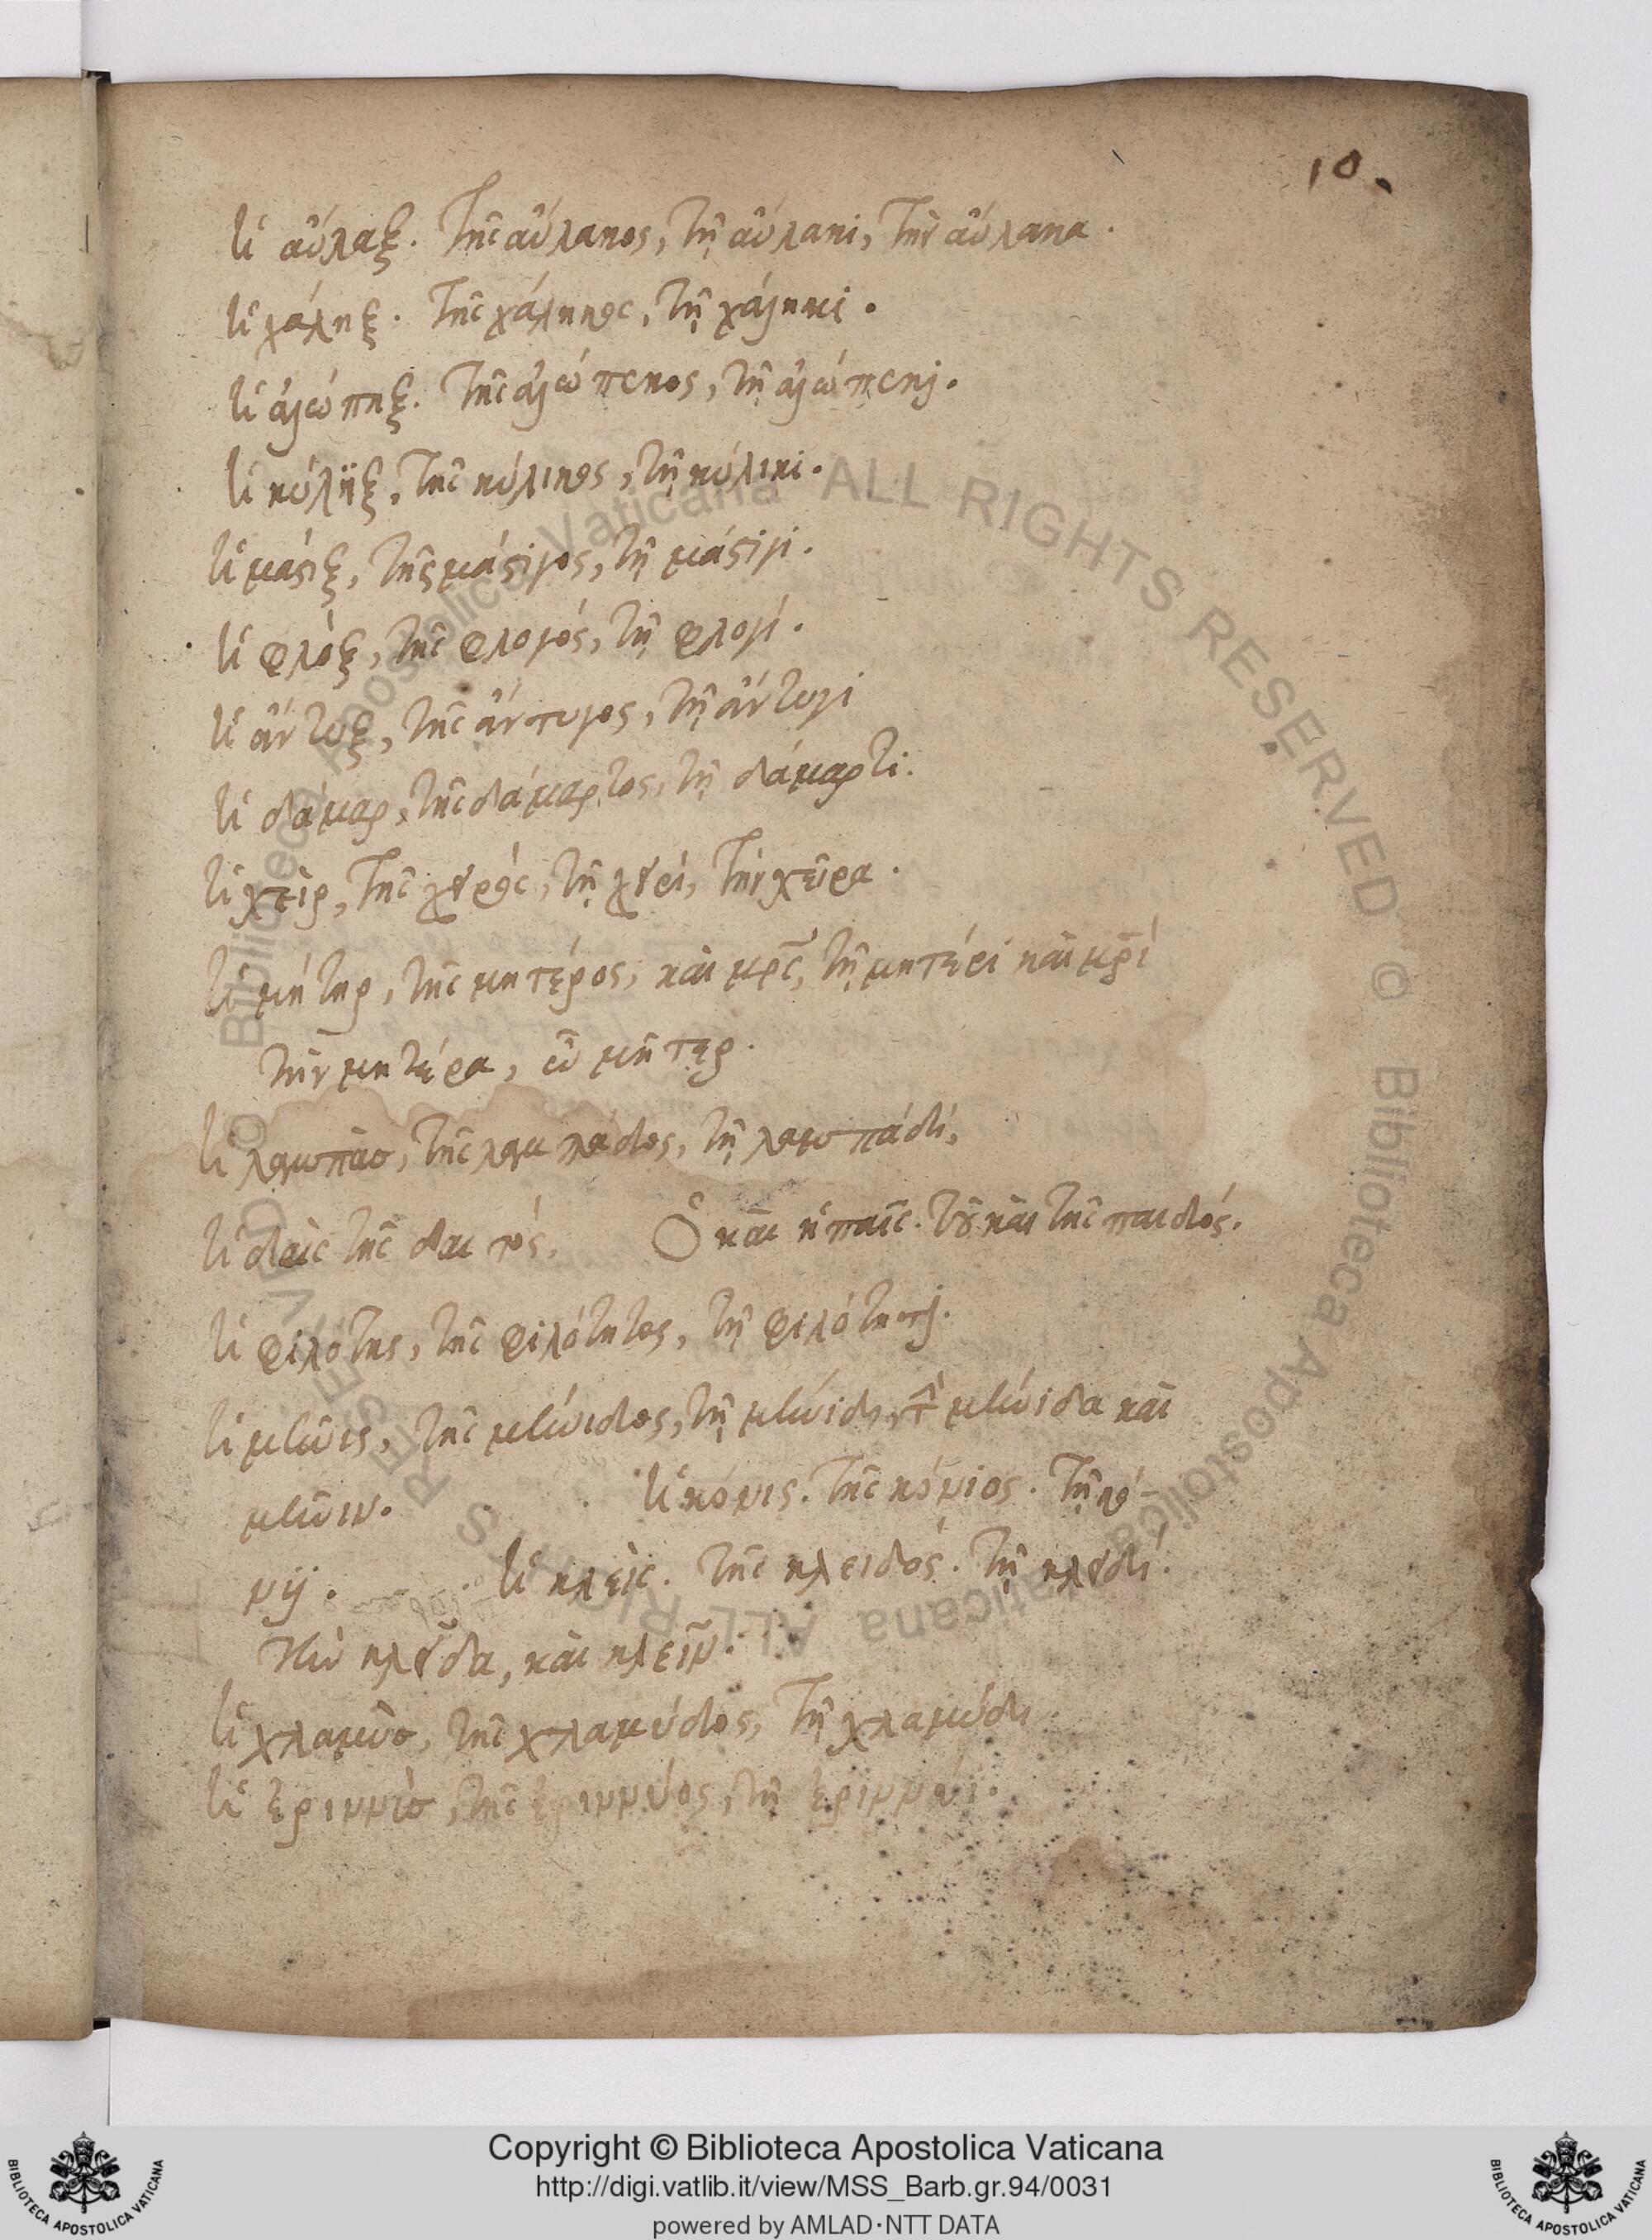 10.
ἡ αὖλαξ. τῆς αὔλακος, τῇ αὔλακι, τὴν αὔλακα.
ἡ χάληξ. τῆς χάληκος, τῇ χάληκι.
ἡ ἀλώπηξ. τῆς ἀλώπεκος, τῇ ἀλώπεκι.
ἡ κύλιξ, τῆς κύλικος, τῇ κύλικι.
ἡ μάστιξ, τῆς μάστιγος, τῇ μάστιγι.
ἡ φλὸξ, τῆς φλογός, τῇ φλογί.
ἡ ἄντυξ, τῆς ἄντυγος, τῇ ἄντυγι
ἡ δάμαρ, τῆς δάμαρτος, τῇ δάμαρτι.
ἡ χεὶρ, τῆς χειρός, τῇ χειρί, τὴν χεῖρα.
ἡ μήτηρ, τῆς μητέρος, καὶ μρς, τῇ μητέρι καὶ μρί
τὴν μητέρα, ὦ μῆτερ.
ἡ λαμπὰς, τῆς λαμπάδος, τῇ λαμπάδι,
ἡ δαὶς τῆς δαιτός. Ὁ καὶ ἡ παῖς. τοῦ καὶ τῆς παιδός.
ἡ φιλότης, τῆς φιλότητος, τῇ φιλότητι.
ἡ μῆνις, τῆς μήνιδος, τῇ μήνιδι, τὴν μήνιδα καὶ
μῆνιν. ἡ κόνις. τῆς κόνιος. τῇ κό-
νιϊ. ἡ κλεὶς. τῆς κλειδός. τῇ κλειδί.
τὴν κλεῖδα, καὶ κλεῖν.
ἡ χλαμὺς, τῆς χλαμύδος, τῇ χλαμύδι
ἡ ἐριννὺς, τῆς ἐριννύος, τῇ ἐριννύι.
Biblioteca Apostolica Vaticana ALL RIGHTS RESERVED ©
Biblioteca Apostolica Vaticana ALL RIGHTS RESERVED ©
Copyright © Biblioteca Apostolica Vaticana
http://digi.vatlib.it/view/MSS_Barb.gr.94/0031
powered by AMLAD·NTT DATA
BIBLIOTECA APOSTOLICA VATICANA
BIBLIOTECA APOSTOLICA VATICANA